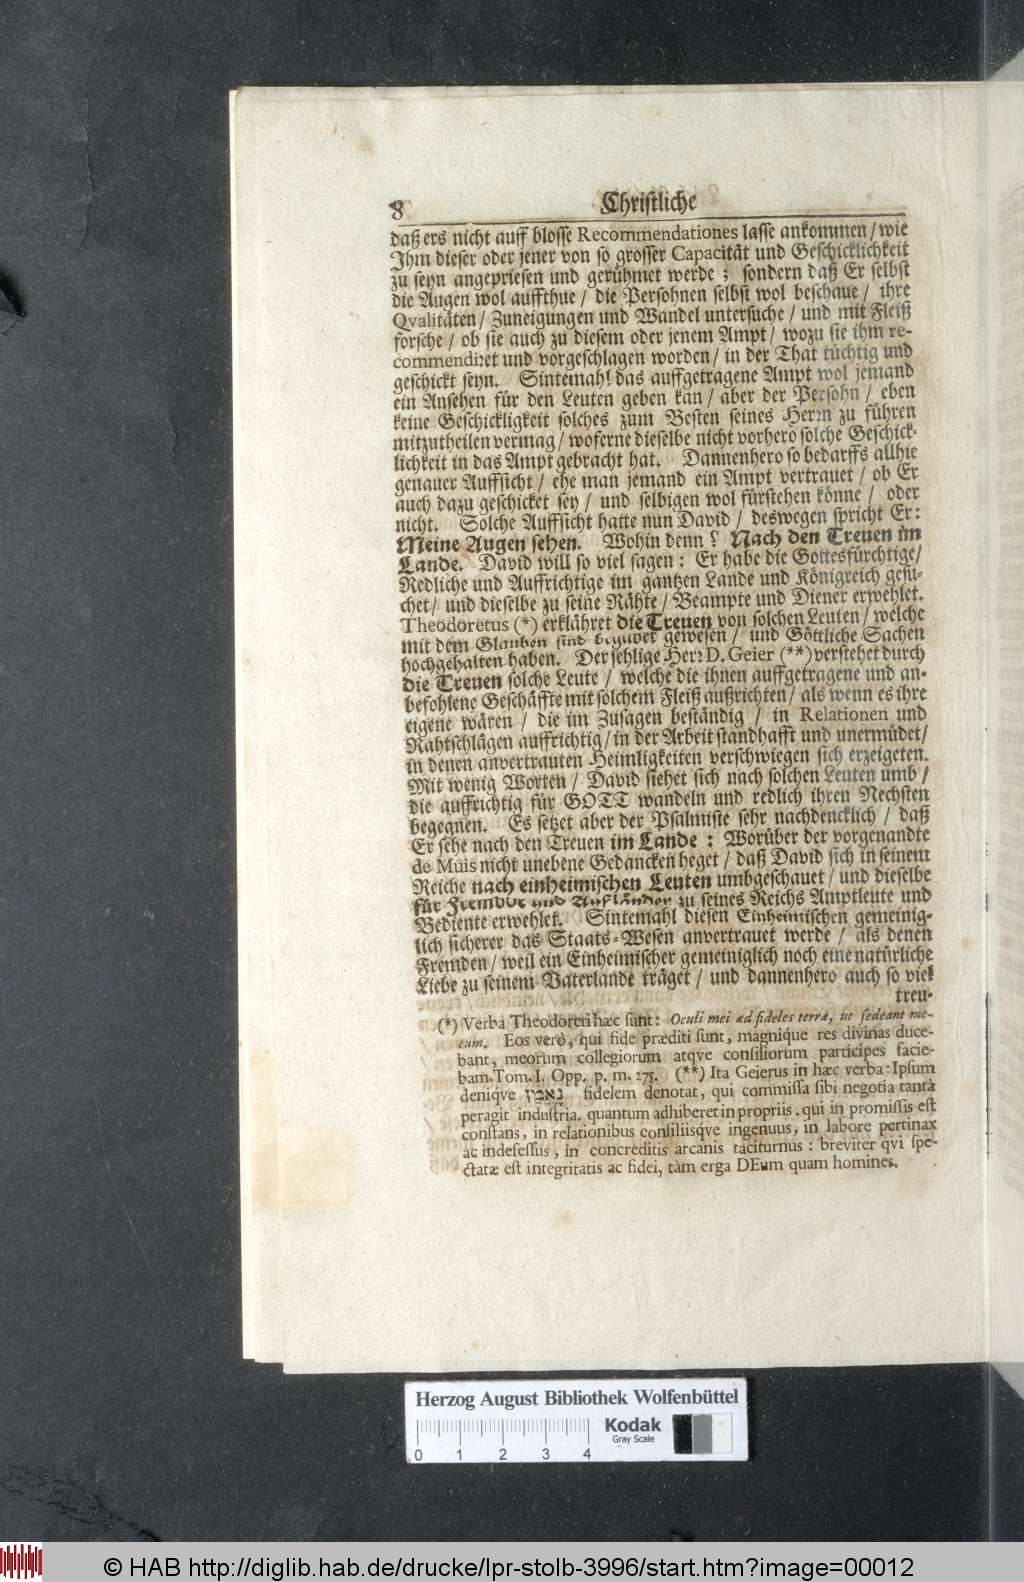 8 Christliche
daß ers nicht auff blosse Recommendationes lasse ankommen / wie
Ihm dieser oder jener von so grosser Capacität und Geschicklichkeit
zu seyn angepriesen und gerühmet werde ; sondern daß Er selbst
die Augen wol auffthue / die Persohnen selbst wol beschaue / ihre
Qvalitäten / Zuneigungen und Wandel untersuche / und mit Fleiß
forsche / ob sie auch zu diesem oder jenem Ampt / wozu sie ihm re-
commendiret und vorgeschlagen worden / in der That tüchtig und
geschickt seyn. Sintemahl das auffgetragene Ampt wol jemand
ein Ansehen für den Leuten geben kan / aber der Persohn / eben
keine Geschickligkeit solches zum Besten seines Herrn zu führen
mitzutheilen vermag / woferne dieselbe nicht vorhero solche Geschick-
lichkeit in das Ampt gebracht hat. Dannenhero so bedarffs allhie
genauer Auffsicht / ehe man jemand ein Ampt vertrauet / ob Er
auch dazu geschicket sey / und selbigen wol fürstehen könne / oder
nicht. Solche Auffsicht hatte nun David / deswegen spricht Er:
Meine Augen sehen. Wohin denn? Nach den Treuen im
Lande. David will so viel sagen: Er habe die Gottesfürchtige /
Redliche und Auffrichtige im gantzen Lande und Königreich gesu-
chet / und dieselbe zu seine Rähte / Beampte und Diener erwehlet.
Theodoretus (*) erklähret die Treuen von solchen Leuten / welche
mit dem Glauben sind begabet gewesen / und Göttliche Sachen
hochgehalten haben. Der sehlige Herr D. Geier (**) verstehet durch
die Treuen solche Leute / welche die ihnen auffgetragene und an-
befohlene Geschäffte mit solchem Fleiß außrichten / als wenn es ihre
eigene wären / die im Zusagen beständig / in Relationen und
Rahtschlägen auffrichtig / in der Arbeit standhafft und unermüdet /
in denen anvertrauten Heimligkeiten verschwiegen sich erzeigeten.
Mit wenig Worten / David siehet sich nach solchen Leuten umb /
die auffrichtig für GOTT wandeln und redlich ihren Nechsten
begegnen. Es setzet aber der Psalmiste sehr nachdencklich / daß
Er sehe nach den Treuen im Lande: Worüber der vorgenandte
de Muis nicht unebene Gedancken heget / daß David sich in seinem
Reiche nach einheimischen Leuten umbgeschauet / und dieselbe
für Frembde und Außländer zu seines Reichs Amptleute und
Bediente erwehlet. Sintemahl diesen Einheimischen gemeinig-
lich sicherer das Staats-Wesen anvertrauet werde / als denen
Fremden / weil ein Einheimischer gemeiniglich noch eine natürliche
Liebe zu seinem Vaterlande träget / und dannenhero auch so viel
treu-
(*) Verba Theodoreti hæc sunt: Oculi mei ad fideles terræ, ut sedeant me-
cum. Eos vero, qui fide præditi sunt, magnique res divinas duce-
bant, meorum collegiorum atqve consiliorum participes facie-
bam. Tom. I. Opp. p. m. 275. (**) Ita Geierus in hæc verba: Ipsum
deniqve נֶאֱמָן fidelem denotat, qui commissa sibi negotia tantâ
peragit industria, quantum adhiberet in propriis, qui in promissis est
constans, in relationibus consiliisqve ingenuus, in labore pertinax
ac indefessus, in concreditis arcanis taciturnus: breviter qvi spe-
ctatæ est integritatis ac fidei, tàm erga DEum quam homines.
Herzog August Bibliothek Wolfenbüttel
0 1 2 3 4
Kodak
Gray Scale
© HAB http://diglib.hab.de/drucke/lpr-stolb-3996/start.htm?image=00012